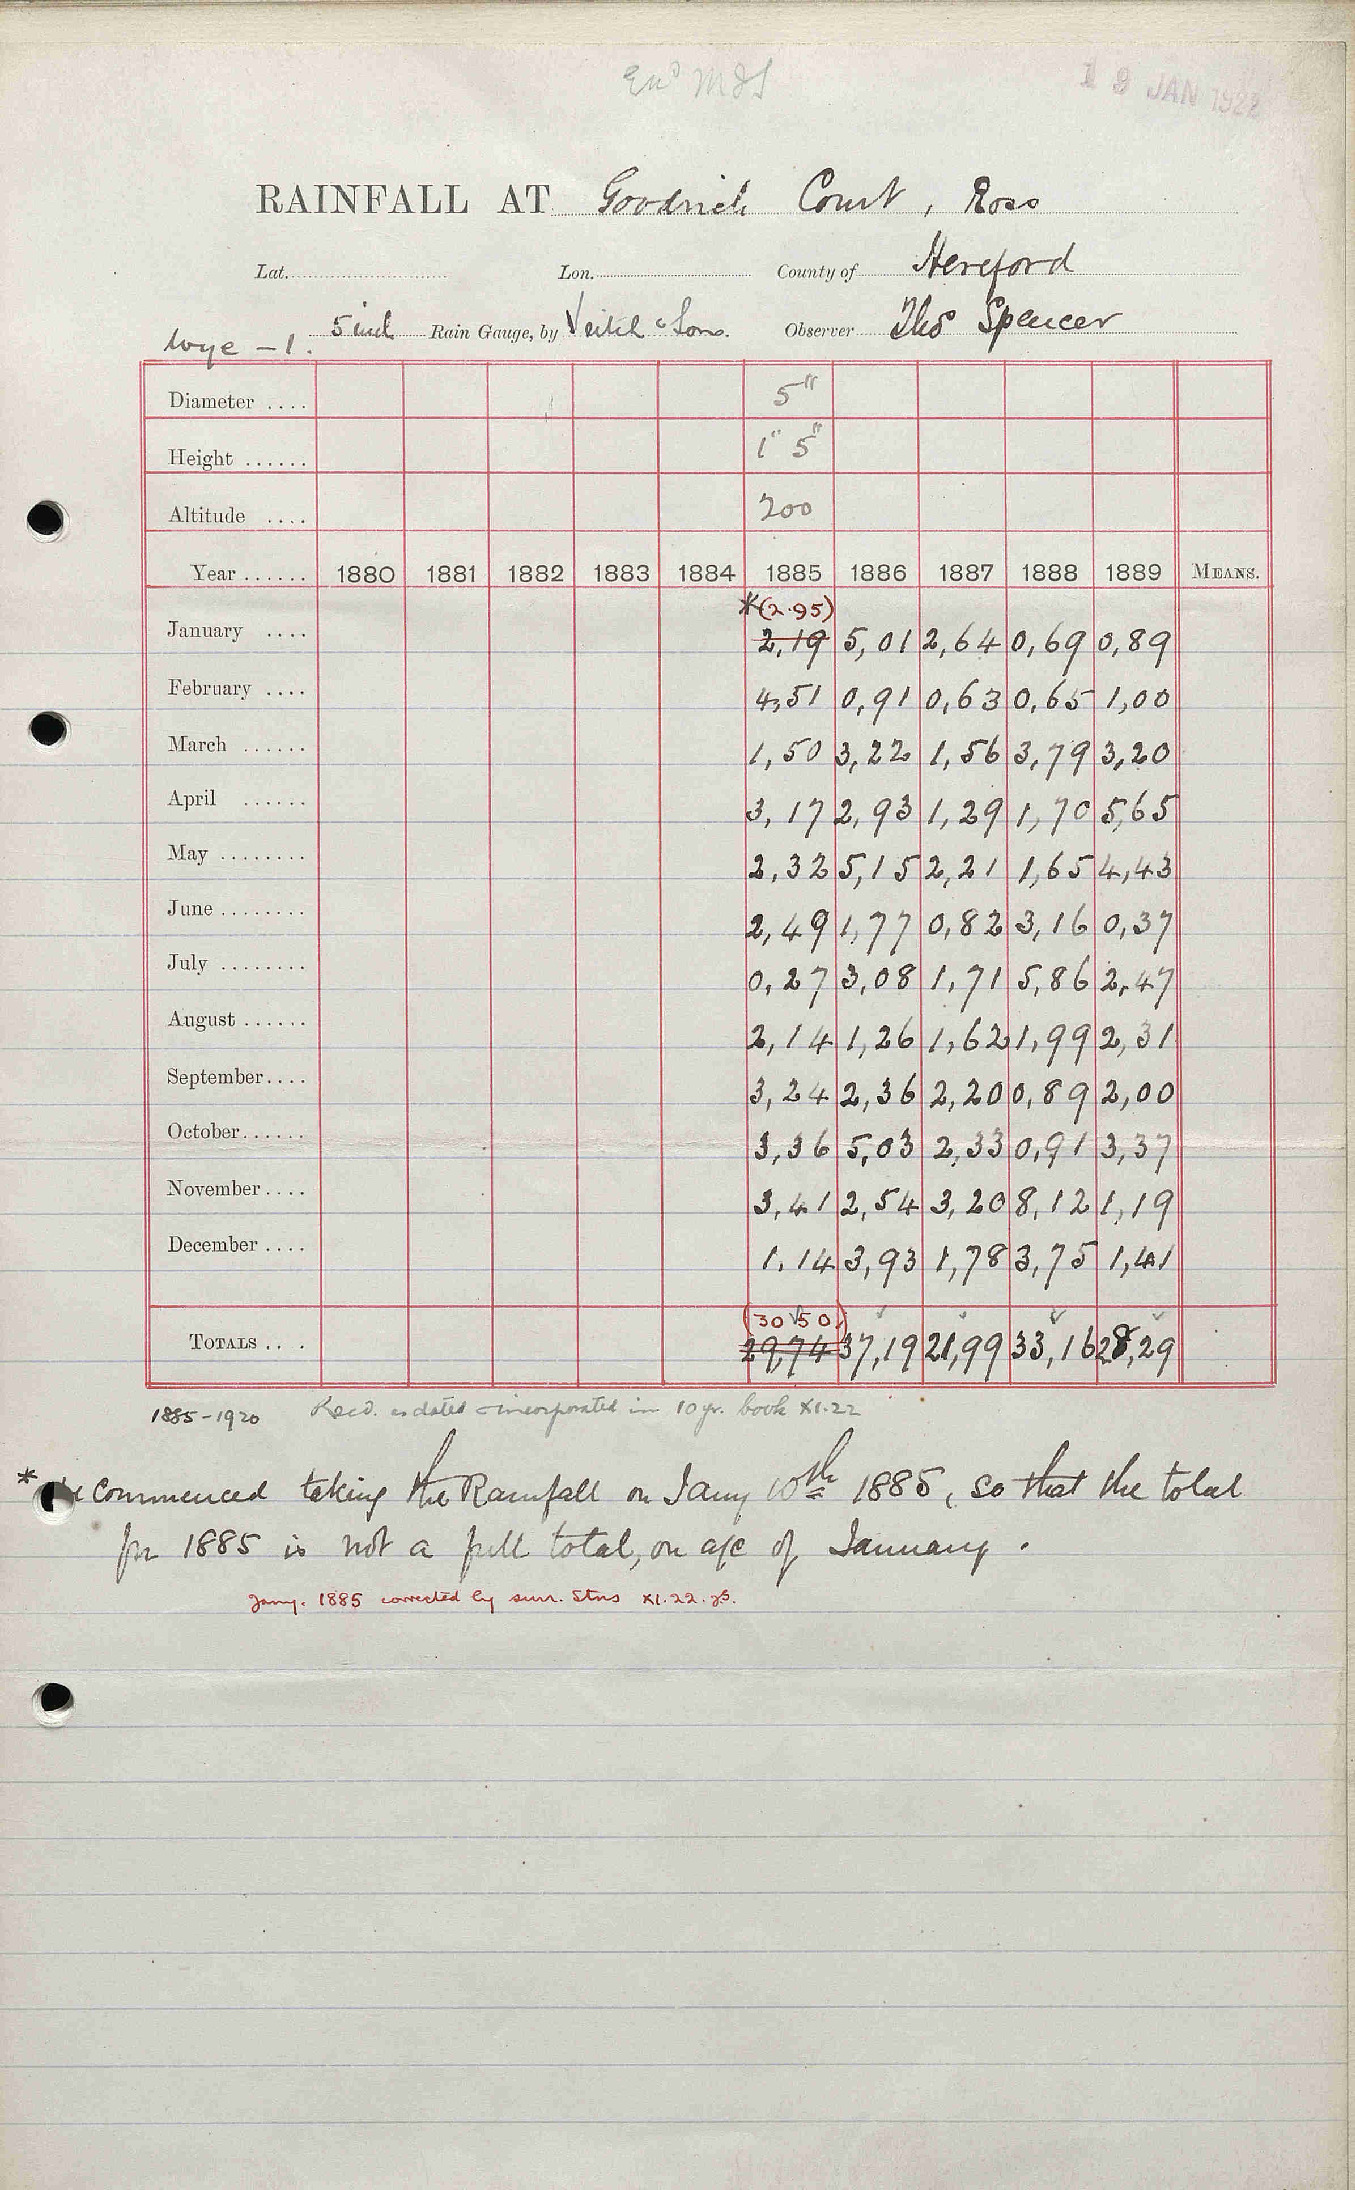 19 JAN 1922
RAINFALL AT Goodrich Court, Ross
Lat. Lon. County of Hereford
Wye - 1. 5 inch Rain Gauge, by Veitch & Sons. Observer Thos Spencer
Diameter .... 5"
Height ...... 1" 5"
Altitude .... 200
Year ...... 1880 1881 1882 1883 1884 1885 1886 1887 1888 1889 MEANS.
*(2.95)
January .... 2,19 5,01 2,64 0,69 0,89
February .... 4,51 0,91 0,63 0,65 1,00
March ...... 1,50 3,22 1,56 3,79 3,20
April ...... 3,17 2,93 1,29 1,70 5,65
May ........ 2,32 5,15 2,21 1,65 4,43
June ........ 2,49 1,77 0,82 3,16 0,37
July ........ 0,27 3,08 1,71 5,86 2,47
August ...... 2,14 1,26 1,62 1,99 2,31
September.... 3,24 2,36 2,20 0,89 2,00
October...... 3,36 5,03 2,33 0,91 3,37
November.... 3,41 2,54 3,20 8,12 1,19
December .... 1,14 3,93 1,78 3,75 1,41
(30.50)
TOTALS .. . 29,74 37,19 21,99 33,16 28,29
1885-1920 Recd. as dated & incorporated in 10 yr. book XI.22
* Commenced taking the Rainfall on Jany 10th 1885, so that the total
for 1885 is not a full total, on a/c of January.
Jany. 1885 corrected by surr. Stns XI.22.